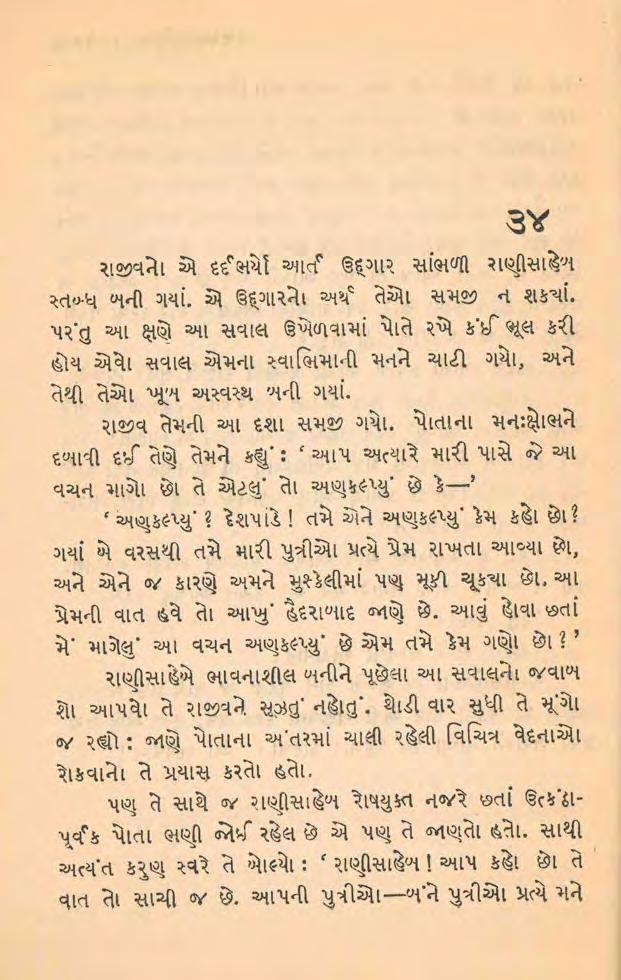 ૩૪
રાજીવનો એ દર્દભર્યો આર્ત ઉદ્દગાર સાંભળી રાણીસાહેબ
સ્તબ્ધ બની ગયાં. એ ઉદ્દગારનો અર્થ તેઓ સમજી ન શકયાં.
પરંતુ આ ક્ષણે આ સવાલ ઉખેળવામાં પોતે રખે કંઈ ભૂલ કરી
હોય એવો સવાલ એમના સ્વાભિમાની મનને ચાટી ગયો, અને
તેથી તેઓ ખૂબ અસ્વસ્થ બની ગયાં.
રાજીવ તેમની આ દશા સમજી ગયો. પોતાના મનઃક્ષોભને
દબાવી દઈ તેણે તેમને કહ્યું : ‘ આપ અત્યારે મારી પાસે જે આ
વચન માગો છો તે એટલું તો અણકલ્પ્યું છે કે—’
‘ અણકલ્પ્યું ? દેશપાંડે ! તમે એને અણકલ્પ્યું કેમ કહો છો ?
ગયાં બે વરસથી તમે મારી પુત્રીઓ પ્રત્યે પ્રેમ રાખતા આવ્યા છો,
અને એને જ કારણે અમને મુશ્કેલીમાં પણ મૂકી ચૂકયા છો. આ
પ્રેમની વાત હવે તો આખું હૈદરાબાદ જાણે છે. આવું હોવા છતાં
મેં માગેલું આ વચન અણકલ્પ્યું છે એમ તમે કેમ ગણો છો ? ’
રાણીસાહેબે ભાવનાશીલ બનીને પૂછેલા આ સવાલનો જવાબ
શો આપવો તે રાજીવને સૂઝતું નહોતું. થોડી વાર સુધી તે મૂંગો
જ રહ્યો : જાણે પોતાના અંતરમાં ચાલી રહેલી વિચિત્ર વેદનાઓ
રોકવાનો તે પ્રયાસ કરતો હતો.
પણ તે સાથે જ રાણીસાહેબ રોષયુક્ત નજરે છતાં ઉત્કંઠા-
પૂર્વક પોતા ભણી જોઈ રહેલ છે એ પણ તે જાણતો હતો. સાથી
અત્યંત કરુણ સ્વરે તે બોલ્યો : ‘ રાણીસાહેબ ! આપ કહો છો તે
વાત તો સાચી જ છે. આપની પુત્રીઓ—બંને પુત્રીઓ પ્રત્યે મને